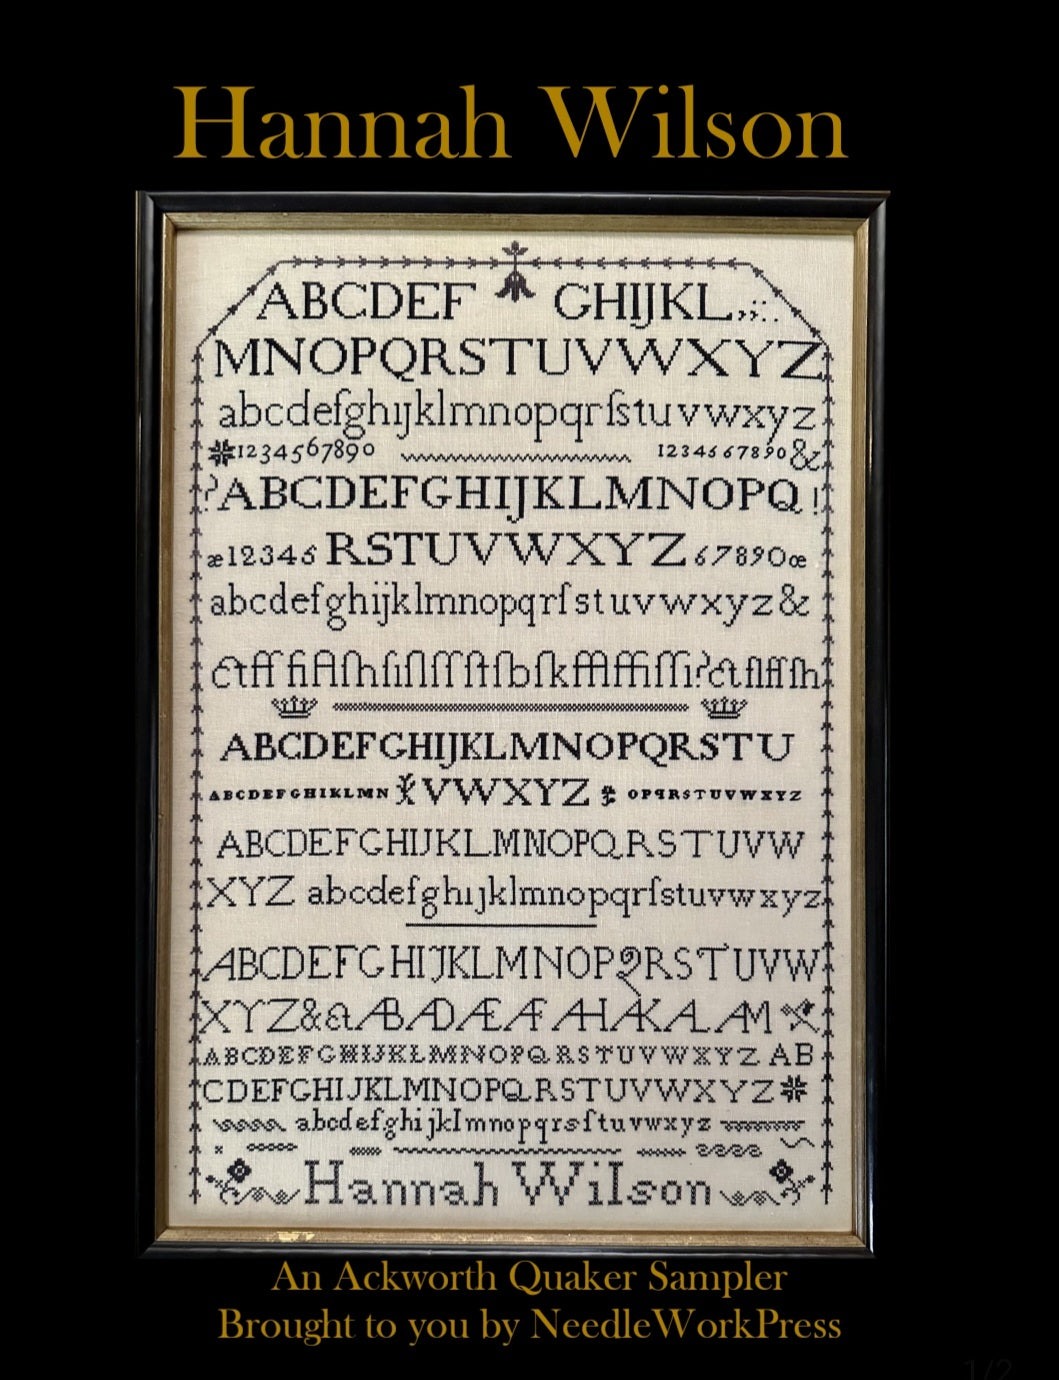 Hannah Wilson
ABCDEF GHIJKL,,;:.
MNOPQRSTUVWXYZ
abcdefghıjklmnopqrſstuvwxyz
1234567890 1234567890&
?ABCDEFGHIJKLMNOPQ!
æ12345 RSTUVWXYZ 67890œ
abcdefghijklmnopqrſstuvwxyz&
ABCDEFGHIJKLMNOPQRSTU
ABCDEFGHIKLMN VWXYZ OPQRSTUVWXYZ
ABCDEFGHIJKLMNOPQRSTUVW
XYZ abcdefghıjklmnopqrſstuvwxyz
ABCDEFGHIJKLMNOPQRSTUVW
XYZ&
ABCDEFGHIJKLMNOPQRSTUVWXYZ AB
CDEFGHIJKLMNOPQRSTUVWXYZ
abcdefghijklmnopqrsſtuvwxyz
Hannah Wilson
An Ackworth Quaker Sampler
Brought to you by NeedleWorkPress
1/2